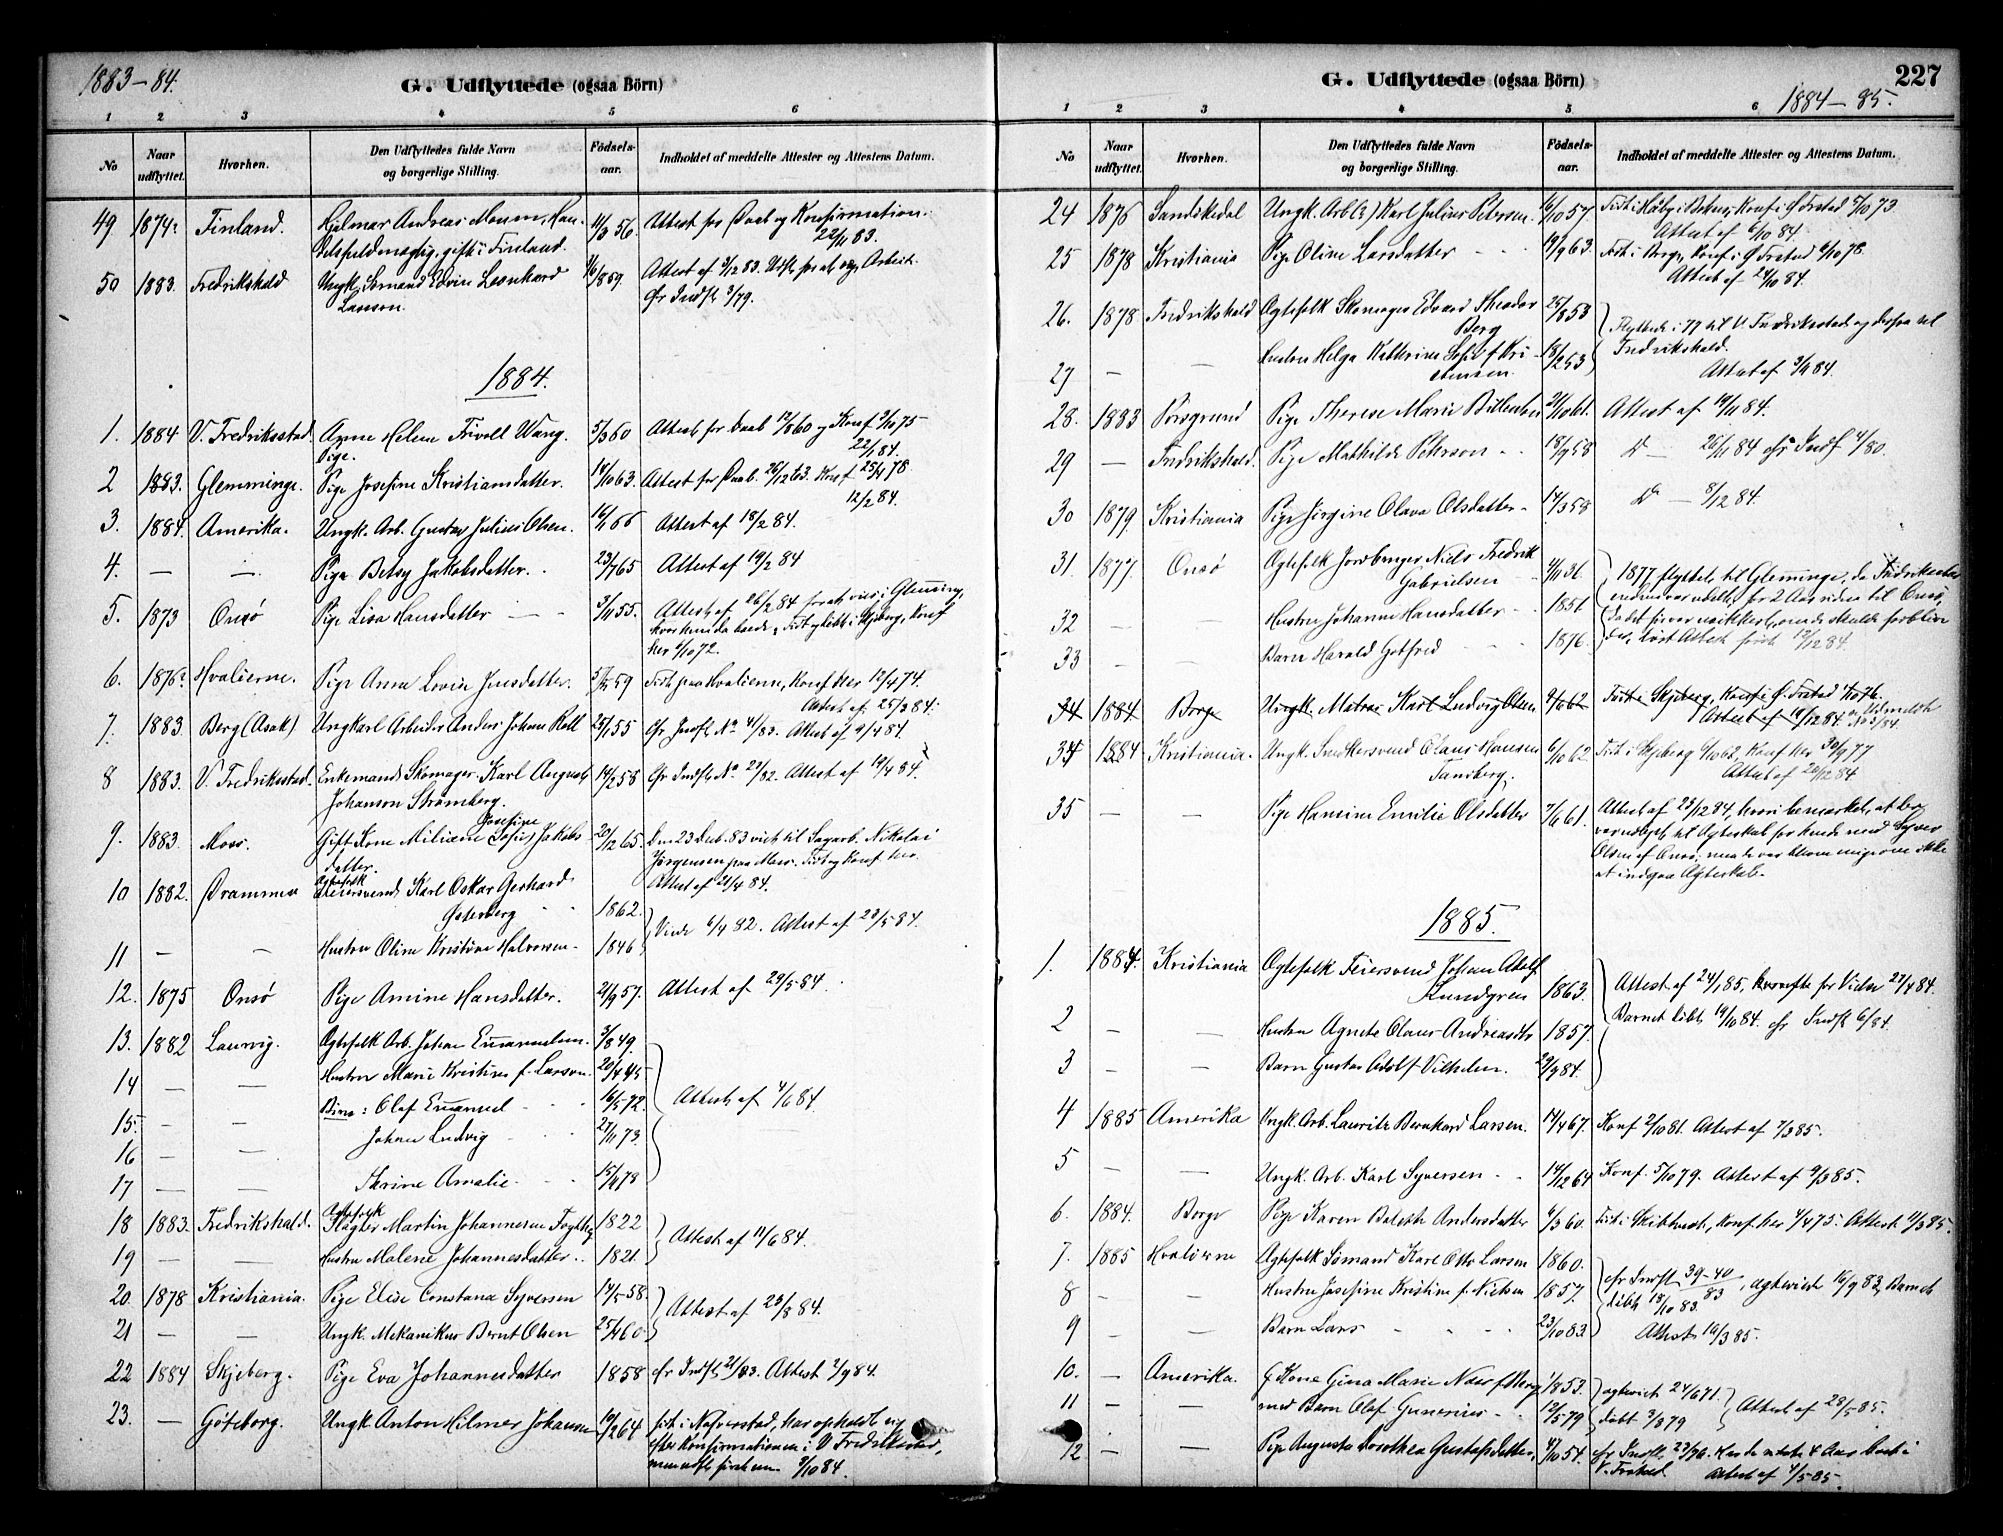 1883-84.
G. Udflyttede (ogsaa Börn)
1 2 3 4 5 6
No Naar udflyttet. Hvorhen. Den Udflyttedes fulde Navn og borgerlige Stilling. Födsels-aar. Indholdet af meddelte Attester og Attestens Datum.
49 1874? Finland. Hjelmar Andreas Moum, Han- 11/3 56. Attest for Daab og Konfirmation
gift i Finland. 22/11 83.
50 1883. Fredrikshald Ungk. Edvin Leonhard 1859. Attest af 3/12 83.
Larson. Cfr Indfl 3/79.
1884.
1. 1884 V. Fredriksstad. Anne Helene Frivoll Wang. 5/3 60 Attest for Daab 12/8 60 og Konf 3/10 75
Pige. 22/1 84.
2 1883. Glemminge. Pige Josefine Kristiansdatter. 14/10 63. Attest for Daab 26/12 63. Konf 25/4 78
12/2 84.
3. 1884. Amerika. Ungk. Arb. Gustav Julius Olsen. 16/11 66 Attest af 18/2 84.
4. — — Pige Betsy Jakobsdatter. 23/7 65 Attest af 19/2 84
5. 1873 Onsö Pige Lisa Hansdatter — 3/11 55. Attest af 26/2 84
her 1/10 72.
6. 1876? Hvalöerne. Pige Anna Lovise Jensdatter. 59 Födt paa Hvalöerne, Konf her 12/4 74.
Attest af 25/3 84.
7. 1883. Berg (Asak) Ungkarl Arbeider Anders Johan Roll 25/1 55 Cfr Indfl. No 41/83. Attest af 9/4 84.
8 1883. V. Fredriksstad. Enkemand Skomager Karl August 14/2 58 Cfr Indfl. No 27/82. Attest af 19/4 84.
Johanson Strömberg.
9. 1883. Moss. Gift Kone Josefine Jakobs- 20/12 65. Den 23 Dec. 83 viet til Sagarb. Nikolai
datter. Jörgensen paa Moss. Födt og Konf her.
Attest af 21/4 84.
10 1882. Drammen Ægtefolk Feiersvend Karl Oskar Gerhard
Österberg 1862. Viede 6/4 82. Attest af 23/5 84.
11 — — Hustru Oline Kristine Halvorsen 1846
12. 1875 Onsö Pige Amine Hansdatter. 21/9 57. Attest af 29/5 84.
13. 1882 Laurvig. Ægtefolk Arb. Johan Emanuelsen. 3/8 49.
14 — — Hustru Marie Kristine f. Larson. 20/4 45
15. — — Börn: Olaf Emanuel 16/5 72. Attest af 4/6 84.
16 — — Johan Ludvig 27/11 73.
17 — — Skrine Amalie 15/4 78
18 1883. Fredrikshald. Ægtefolk Martin Johannesen 1822 Attest af 11/6 84.
19 — — Hustru Malene Johannesdatter. 1821.
20. 1878 Kristiania. Pige Elise Constana Syversen 14/5 58. Attest af 23/8 84.
21 — — Ungk. Mekanikus Bernt Olsen 25/4 60.
22 1884 Skjeberg. Pige Eva Johannesdatter 1858 cfr Indfl 21/83. Attest 2/9 84.
23. — Göteborg. Ungk Anton Hilmer Johansen 19/2 64 födt i Nafverstad, har opholdt sig
efter Konfirmationen i V Fredrikstad,
3/10 84.
1884-85.
G. Udflyttede (ogsaa Börn)
227
1 2 3 4 5 6
No Naar udflyttet. Hvorhen. Den Udflyttedes fulde Navn og borgerlige Stilling. Födsels-aar. Indholdet af meddelte Attester og Attestens Datum.
24 1876 Sandskedal Ungk. Arb(?) Karl Julius Petersen. 16/10 57. Födt i Råby i Bohus, Konf i Ö Frstad 5/10 73
Attest af 6/10 84.
25 1878 Kristiania Pige Oline Larsdatter 19/9 63. Födt i Borge, Konf i Ö Frstad 6/10 78.
Attest af 24/10 84.
26. 1878 Fredrikshald Ægtefolk Skomager Edvard Theodor 25/8 53
Berg Flyttede i 77 til V. Fredriksstad og derfra til
27 — — Hustru Helga Katherine Sofie f. Kri- 18/2 53 Fredrikshald.
stensen. Attest af 3/11 84.
28. 1883 Porsgrund Pige Therese Marie 21/10 61. Attest af 19/11 84.
29 — Fredrikshald. Pige Mathilde Peterson 18/9 58 Do — 26/11 84 cfr Indf 4/80.
30 1879. Kristiania Pige Jörgine Olava Olsdatter 14/3 58 Do — 8/12 84
31. 1877. Onsö Ægtefolk Jordbruger Niels Fredrik
Gabrielsen 4/11 36. 1877 flyttet til Glemminge, da Fredriksstad
32 — — Hustru Johanne Hansdatter 1851
33 — — Barn Harald Gotfred 1876. först 17/12 84.
34 1884 Borge Ungk. Matros Karl Ludvig Olsen 9/6 62 Födt i Skjeberg, Konf i Ö. Frstad 1/10 76.
Attest af 19/12 84
34 1884 Kristiania. Ungk. Snedkersvend Olaus Hansen 6/10 62 Födt i Skjeberg 6/10 62, Konf her 30/9 77
Tandberg. Attest af 20/12 84
35 — — Pige Hansine Emilie Olsdatter 7/6 61. Attest af 23/12 84, hvori bemærket, at der
var udlyst til Ægteskab for hende med Syver
Olsen af Onsö,
at indgaa Ægteskab.
1885.
1. 1884. Kristiania Ægtefolk Feiersvend Johan Adolf
Lundgren 1863. Attest af 24/1 85. for Vielse 27/4 84.
2 — — Hustru Agnete Olava Andreasdtr 1857. Barnet döbt 19/10 84. cfr Indfl 6/84.
3 — — Barn Gustav Adolf Vilhelm. 29/9 84.
4 1885 Amerika Ungk. Arb. Lauritz Bernhard Larsen. 14/4 67. Konf 2/10 81. Attest af 7/3 85.
5 — — Ungk. Arb. Karl Syversen 14/12 64 Konf. 5/10 79. Attest af 9/3 85.
6. 1884. Borge Pige Karen Andersdatter 6/3 60. Födt i Skibtvedt, Konf her 4/4 75. Attest 11/3 85.
7. 1885 Hvalöerne Ægtefolk Sömand Karl Otto Larsen 1860. cfr Indfl 39-40/83, ægteviede 16/9 83, Barnet
8 — — Hustru Josefine Kristine f. Nielsen 1857. döbt 18/10 83.
9 — — Barn Lars 23/10 83. Attest 16/3 85.
10. — Amerika. G. Kone Gina Marie 1853. ægteviet 24/6 71.
11 — — med Barn Olaf Gunerius 12/5 79 döbt 3/8 79 Attest af 23/5 85.
12 — — Pige Augusta Dorothea Gustafsdatter, 4/10 54. cfr Indfl. 27/76.
V. Frstad. Attest af 4/5 85.